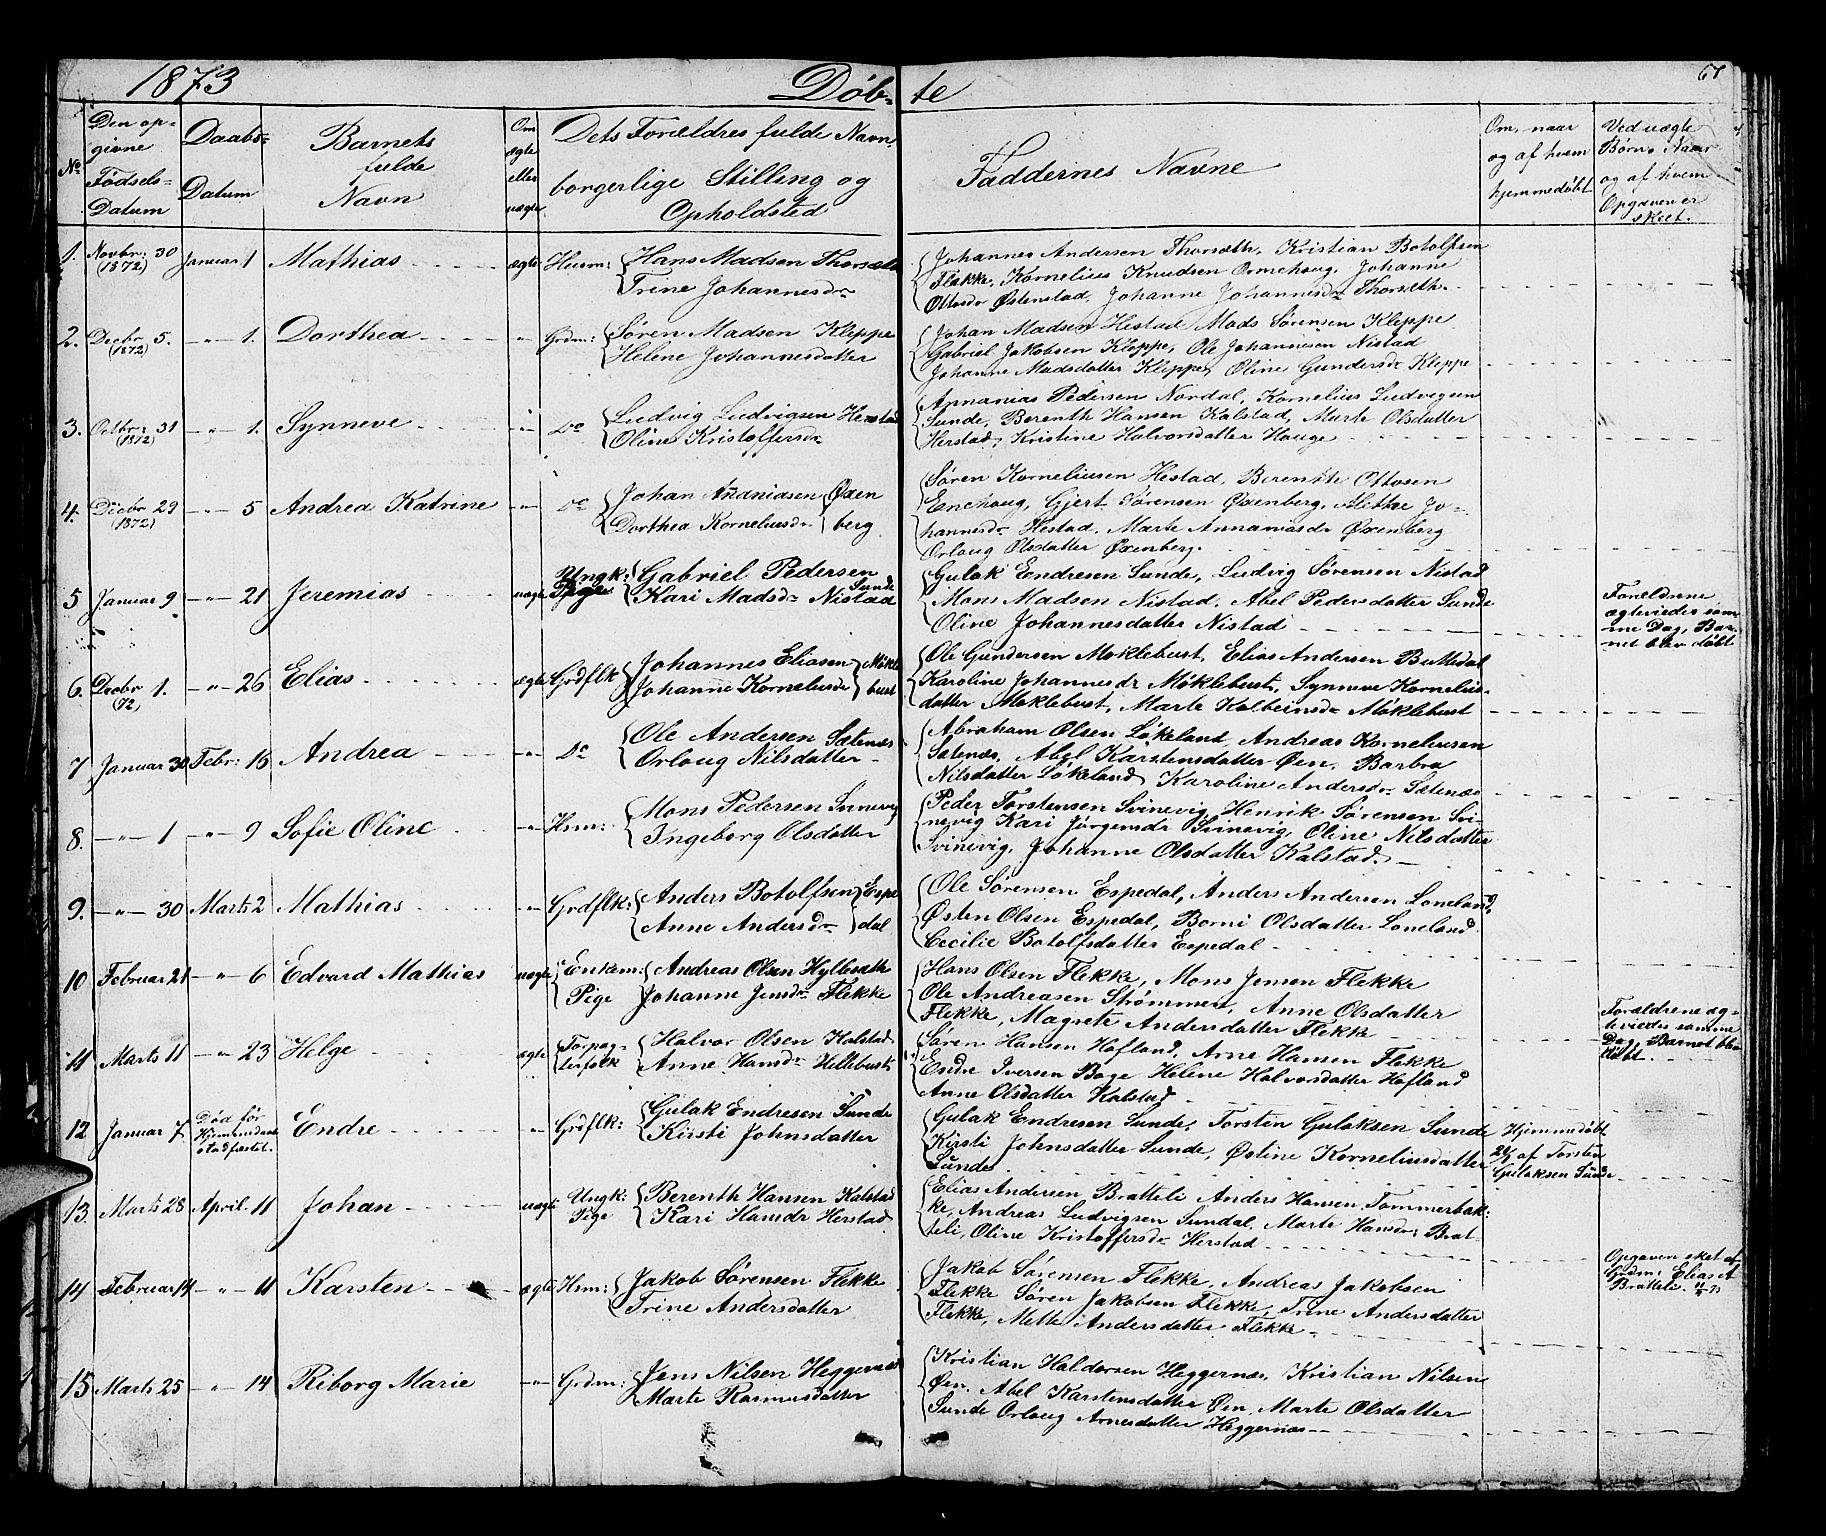 1873 Døbte 67
No. Den opgivne Fødsels-Datum Daabs-Datum Barnets fulde Navn Om ægte eller uægte Dets Forældres fulde Navn, borgerlige Stilling og Opholdsted Faddernes Navne Om, naar og af hvem hjemmedøbt Ved uægte Børn, Naar og af hvem Opgaven er skeet.
1. Novbr: 30 (1872) Januar 1 Mathias ægte Husm: Hans Madsen Thorsæth
Trine Johannesdr
Johannes Andersen Thorsæth, Kristian Botolfsen
Flekke, Kornelius Knudsen Ormehaug, Johanne
Ottosdr Østenstad, Johanne Johannesdr Thorsæth
2. Decbr 5. (1872) -"- 1. Dorthea -"- Grdm: Søren Madsen Kleppe
Helene Johannesdatter
Johan Madsen Hestad Mads Sørensen Kleppe
Gabriel Jakobsen Kleppe, Ole Johannesen Nistad
Johanne Madsdatter Kleppe, Oline Gundersdr Kleppe
3. Octbr: 31 (1872) -"- 1. Synneve -"- Do Ludvig Ludvigsen Herstad
Oline Kristoffersdr
Annanias Pedersen Nordal, Kornelius Ludvigsen
Sunde, Berenth Hansen Kalstad, Marte Olsdatter
Herstad, Kristine Halvorsdatter Hauge
4. Decbr 29 (1872) -"- 5 Andrea Katrine -"- Do Johan Ananiasen Øxen
Dorthea Korneliusdr berg
Søren Korneliusen Hestad, Berenth Ottosen
Ennehaug, Gjert Sørensen Øxenberg, Alethe Jo-
hannesdr Hestad, Marte Annaniasdr Øxenberg
Orloug Olsdatter Øxenberg.
5 Januar 9 -"- 21 Jeremias uægte Ungk: Gabriel Pedersen Sunde
Pige Kari Madsdr Nistad
Gulak Endresen Sunde, Ludvig Sørensen Nistad
Mons Madsen Nistad, Abel Pedersdatter Sunde
Oline Johannesdatter Nistad
Forældrene
ægteviedes sam
me Dag, Bar
net blev døbt
6. Decbr 1. (72) -"- 26 Elias ægte Grdflk Johannes Eliasen Møkle
Johanne Korneliusdr bust
Ole Gundersen Møklebust, Elias Andersen Buttedal
Karoline Johannesdr Møklebust, Synneve Kornelius-
datter Møklebust, Marte Kolbeinsdr Møklebust
7 Januar 30 Febr: 16 Andrea -"- Do Ole Andersen Sætenæs
Orloug Nilsdatter
Abraham Olsen Løkeland Andreas Korneliusen
Sætenæs, Abel Karstensdatter Øen, Barbra
Nilsdatter Løkeland Karoline Andersdr Sætenæs
8. -"- 1 -"- 9 Sofie Oline -"- Hsm: Mons Pedersen Svinevig
Ingeborg Olsdatter
Peder Torstensen Svinevig, Henrik Sørensen Svi-
nevig Kari Jørgensdr Svinevig, Oline Nilsdatter
Svinevig, Johanne Olsdatter Kalstad.
9. -"- 30 Marts 2 Mathias -"- Grdflk: Anders Botolfsen Espe
Anne Andersdr dal
Ole Sørensen Espedal, Anders Andersen Loneland,
Østen Olsen Espedal, Borni Olsdatter Loneland
Cecilie Botolfsdatter Espedal
10 Februar 21 -"- 6 Edvard Mathias uægte Enkem: Andreas Olsen Hyllesæth
Pige Johanne Jensdr Flekke
Hans Olsen Flekke, Mons Jensen Flekke
Ole Andreasen Strømmen, Anne Olsdatter
Flekke, Magrete Andersdatter Flekke
Forældrene æg-
teviedes samme
Dag, Barnet blev
døbt
11 Marts 11 -"- 23 Helge ægte Torpag-
terfolk Halvor Olsen Kalstad
Anne Hansdr Hillebust
Søren Hansen Hofland, Arne Hansen Flekke
Endre Iversen Boge Helene Halvorsdatter Hofland
Anne Olsdatter Kalstad
12 Januar 7 Død før Hjemmedaab stadfæstet. Endre -"- Grdflk: Gulak Endresen Sunde
Kirsti Johnsdatter
Gulak Endresen Sunde, Torsten Gulaksen Sunde
Kirsti Johnsdatter Sunde, Østine Korneliusdatter
Sunde
Hjemmedøbt
21/1 af Torsten
Gulaksen Sunde
13. Marts 28 April 11 Johan uægte Ungk: Berenth Hansen Kalstad
Pige Kari Hansdr Herstad
Elias Andersen Bratteli Anders Hansen Tommerbak-
ke, Andreas Ludvigsen Sundal, Marte Hansdr: Brat
teli, Oline Kristoffersdr Herstad
Opgaven sket af
Grdm: Elias A
Bratteli. 11/4 73
14 Februar 14 -"- 11 Karsten ægte Hsm: Jakob Sørensen Flekke
Trine Andersdatter
Jakob Sørensen Flekke, Andreas Jakobsen
Flekke Søren Jakobsen Flekke, Trine Andersdatter
Flekke, Mette Andersdatter Flekke
15 Marts 25 -"- 14 Riborg Marie -"- Grdm: Jens Nilsen Heggernæs
Marte Rasmusdatter
Kristian Haldorsen Heggernæs, Kristian Nilsen
Øen, Abel Karstensdatter Øen, Marte Olsdatter
Sunde Orloug Arnesdatter Heggernæs